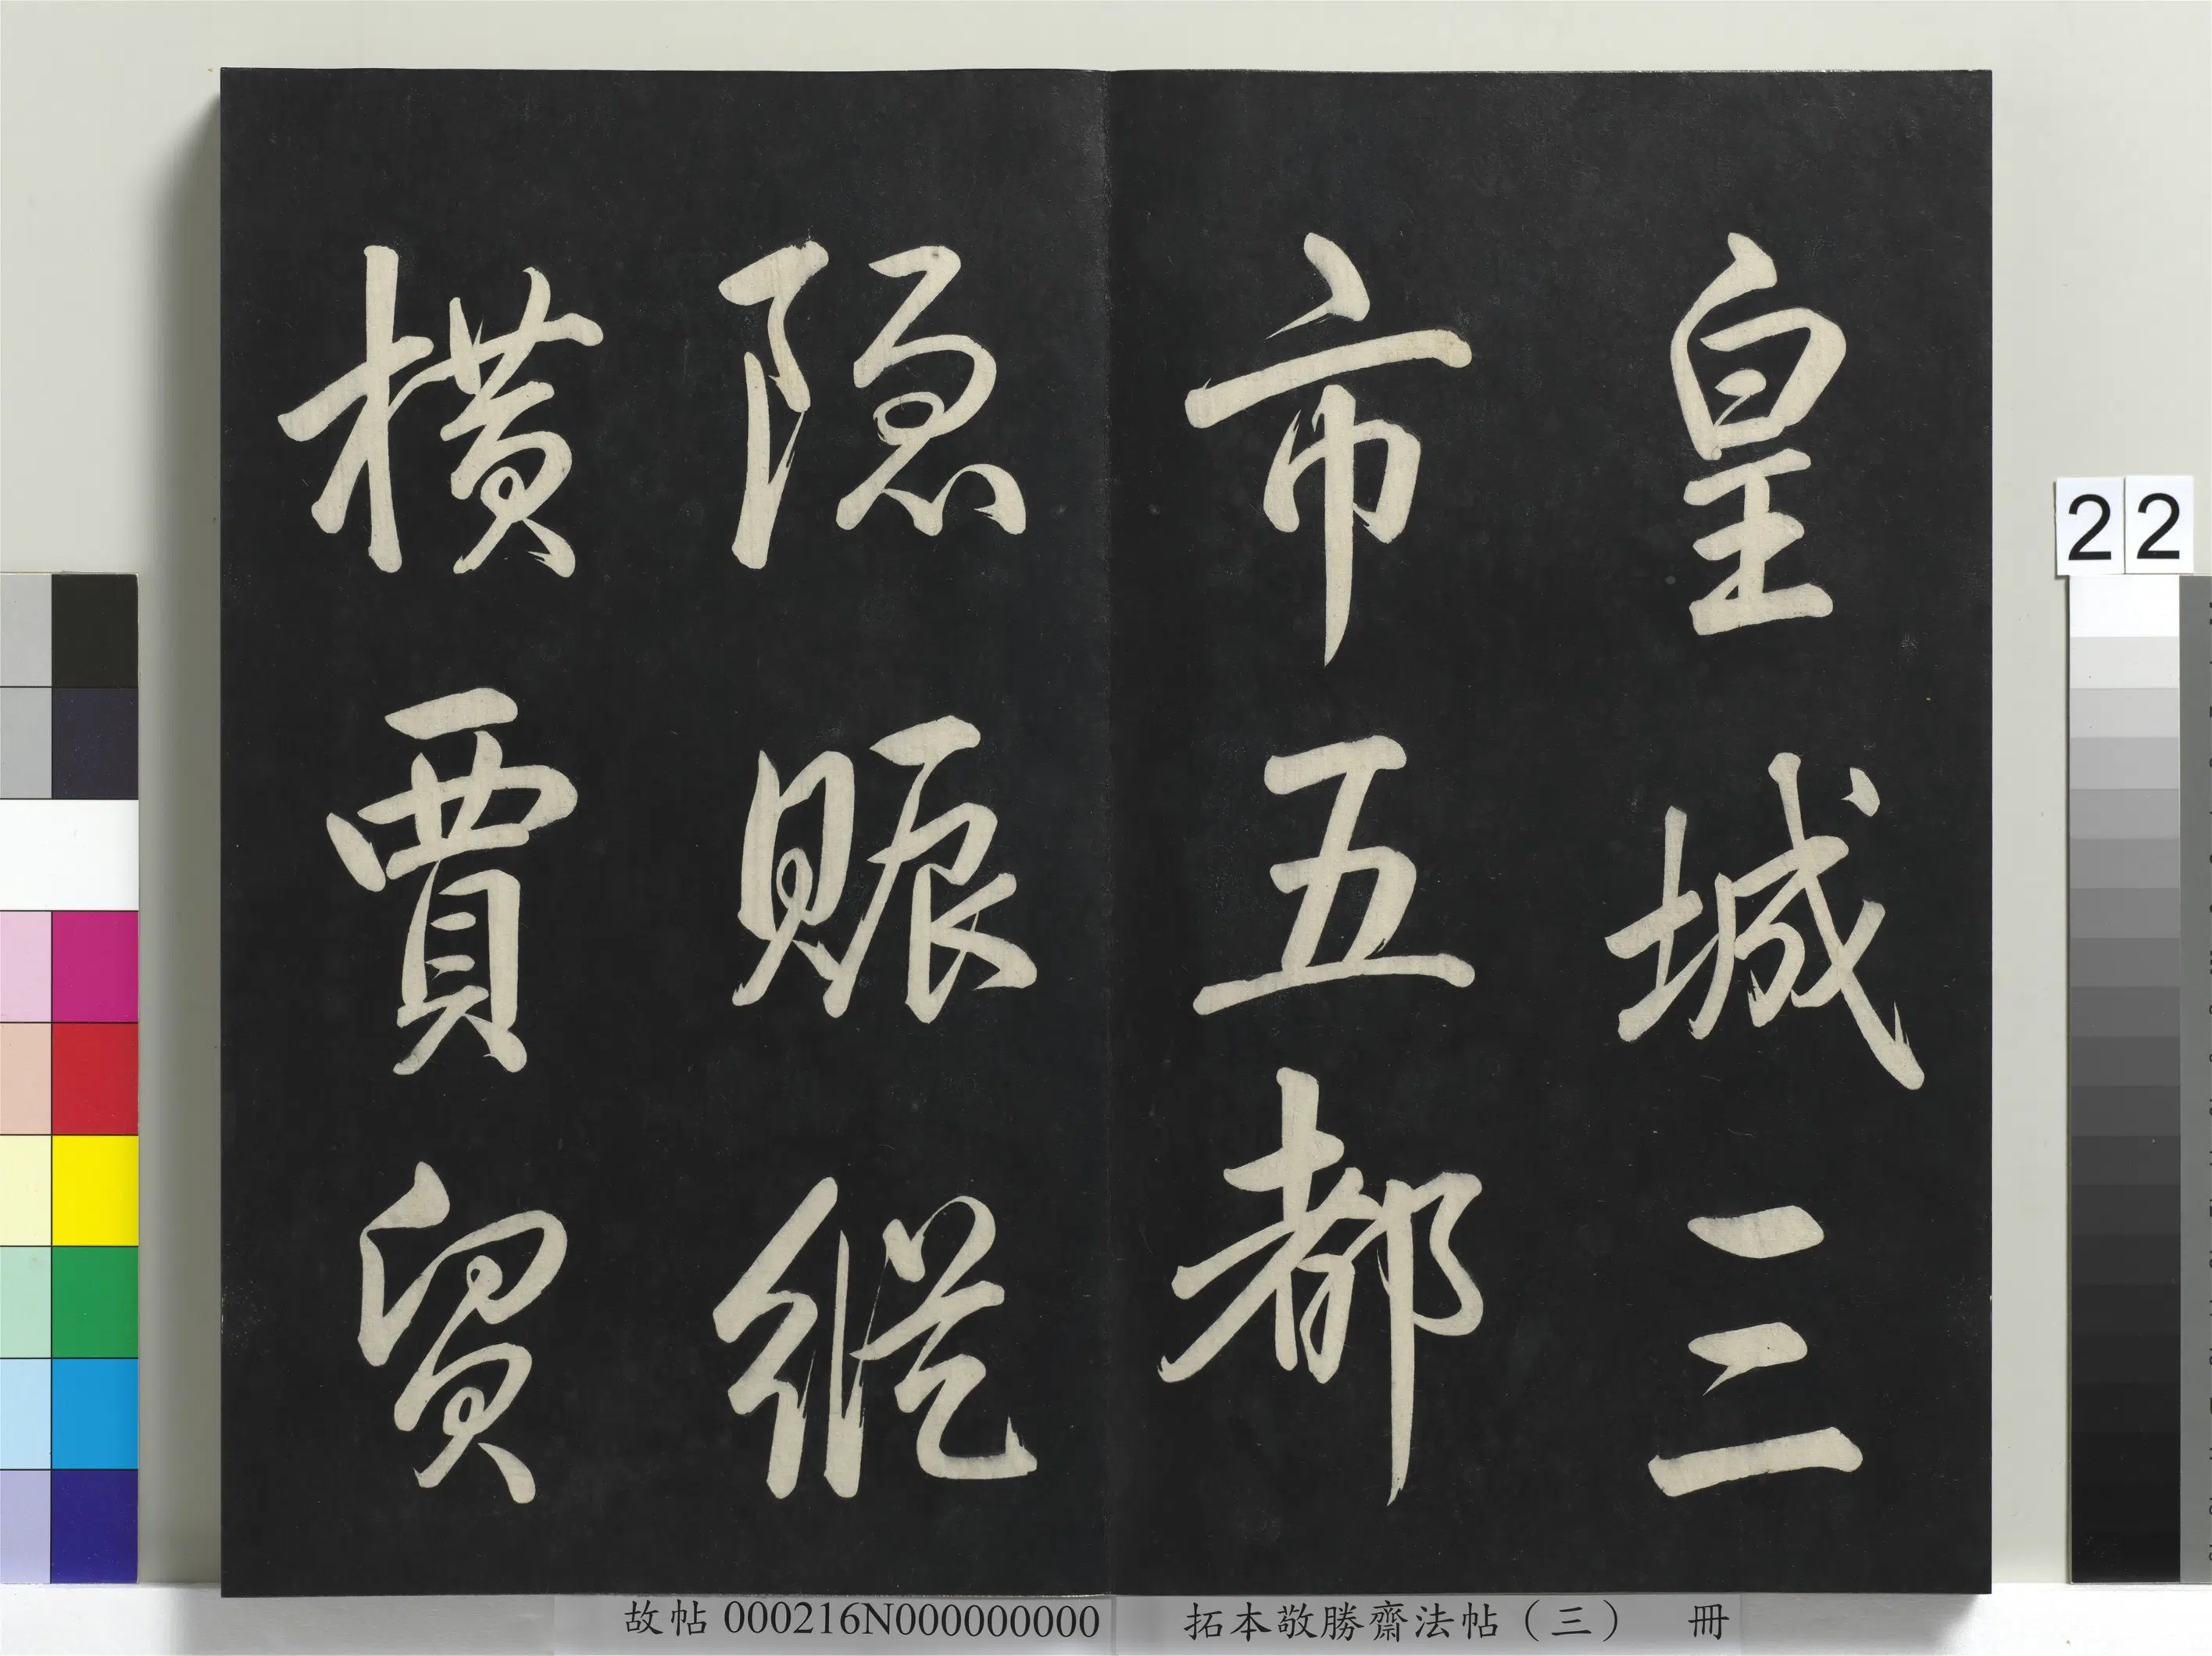 皇城三
市五都
隱賑縱
橫賈貿
22
故帖000216N000000000
拓本敬勝齋法帖（三） 冊